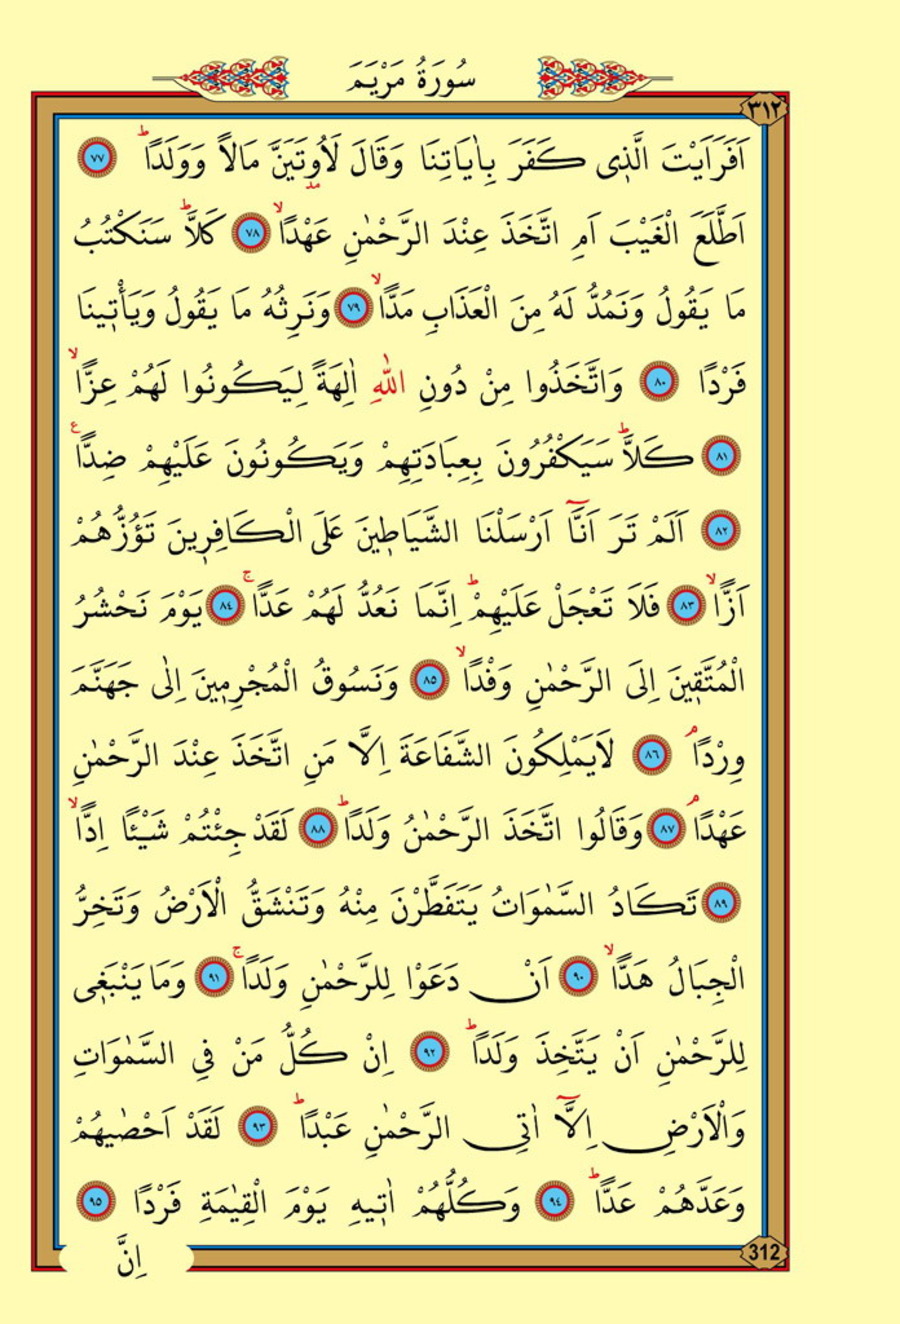 سُورَةُ مَرْيَمَ
٣١٢
اَفَرَاَيْتَ الَّذ۪ى كَفَرَ بِاٰيَاتِنَا وَقَالَ لَاُوتَيَنَّ مَالاً وَوَلَدًاۜ ﴿٧٧﴾
اَطَّلَعَ الْغَيْبَ اَمِ اتَّخَذَ عِنْدَ الرَّحْمٰنِ عَهْدًاۙ ﴿٧٨﴾ كَلاَّۜ سَنَكْتُبُ
مَا يَقُولُ وَنَمُدُّ لَهُ مِنَ الْعَذَابِ مَدًّاۙ ﴿٧٩﴾ وَنَرِثُهُ مَا يَقُولُ وَيَأْت۪ينَا
فَرْدًا ﴿٨٠﴾ وَاتَّخَذُوا مِنْ دُونِ اللّٰهِ اٰلِهَةً لِيَكُونُوا لَهُمْ عِزًّاۙ
﴿٨١﴾ كَلاَّۜ سَيَكْفُرُونَ بِعِبَادَتِهِمْ وَيَكُونُونَ عَلَيْهِمْ ضِدًّا ع
﴿٨٢﴾ اَلَمْ تَرَ اَنَّٓا اَرْسَلْنَا الشَّيَاط۪ينَ عَلَى الْكَافِر۪ينَ تَؤُزُّهُمْ
اَزًّاۙ ﴿٨٣﴾ فَلَا تَعْجَلْ عَلَيْهِمْۜ اِنَّمَا نَعُدُّ لَهُمْ عَدًّاۚ ﴿٨٤﴾ يَوْمَ نَحْشُرُ
الْمُتَّق۪ينَ اِلَى الرَّحْمٰنِ وَفْدًاۙ ﴿٨٥﴾ وَنَسُوقُ الْمُجْرِم۪ينَ اِلٰى جَهَنَّمَ
وِرْدًاۢ ﴿٨٦﴾ لَايَمْلِكُونَ الشَّفَاعَةَ اِلاَّ مَنِ اتَّخَذَ عِنْدَ الرَّحْمٰنِ
عَهْدًاۢ ﴿٨٧﴾ وَقَالُوا اتَّخَذَ الرَّحْمٰنُ وَلَدًاۜ ﴿٨٨﴾ لَقَدْ جِئْتُمْ شَيْـًٔا اِدًّاۙ
﴿٨٩﴾ تَكَادُ السَّمٰوَاتُ يَتَفَطَّرْنَ مِنْهُ وَتَنْشَقُّ الْاَرْضُ وَتَخِرُّ
الْجِبَالُ هَدًّاۙ ﴿٩٠﴾ اَنْ دَعَوْا لِلرَّحْمٰنِ وَلَدًاۚ ﴿٩١﴾ وَمَا يَنْبَغ۪ى
لِلرَّحْمٰنِ اَنْ يَتَّخِذَ وَلَدًاۜ ﴿٩٢﴾ اِنْ كُلُّ مَنْ فِى السَّمٰوَاتِ
وَالْاَرْضِ اِلآَّ اٰتِى الرَّحْمٰنِ عَبْدًاۜ ﴿٩٣﴾ لَقَدْ اَحْصٰيهُمْ
وَعَدَّهُمْ عَدًّاۜ ﴿٩٤﴾ وَكُلُّهُمْ اٰت۪يهِ يَوْمَ الْقِيٰمَةِ فَرْدًا ﴿٩٥﴾
اِنَّ
312